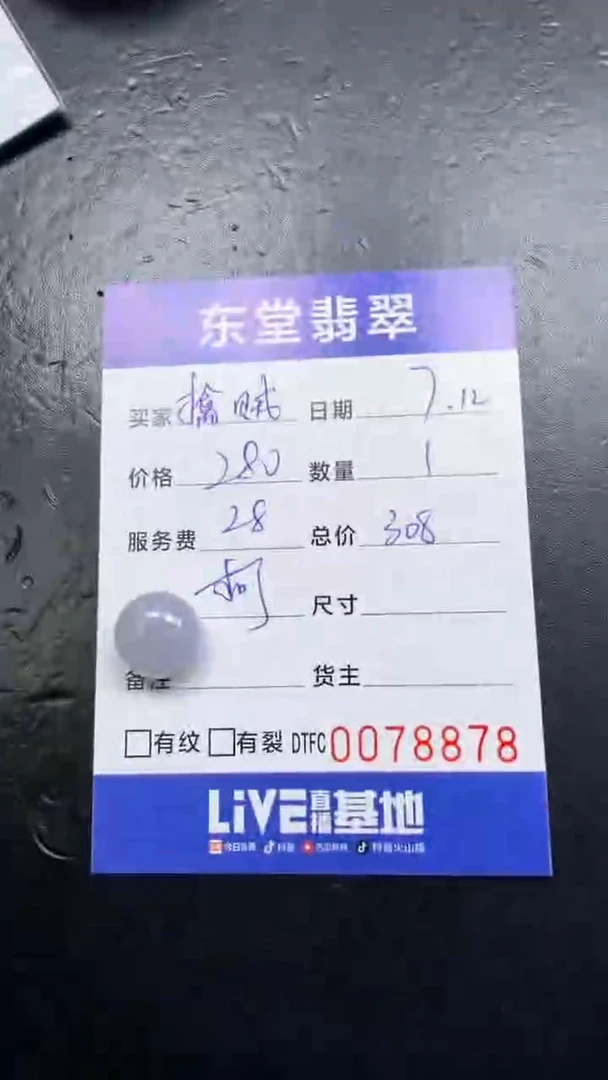 东堂翡翠
买家 擒贼 日期 7.12
价格 280 数量 1
服务费 28 总价 308
尺寸
备注 货主
□有纹 □有裂 DTFC 0078878
LiVE直播基地
抖音 抖音火山版